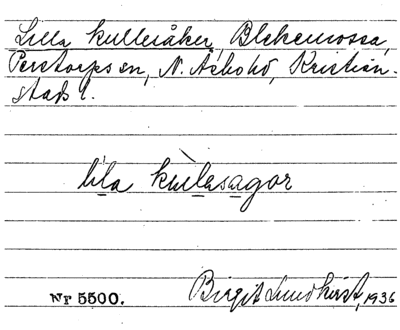 Lilla kullesåker, Blekemossa,
Perstorps sn, N. Åsbo hd, Kristian-
stads l.
lila kùllasagor
Nr 5500.
Birgit Lundkvist, 1936